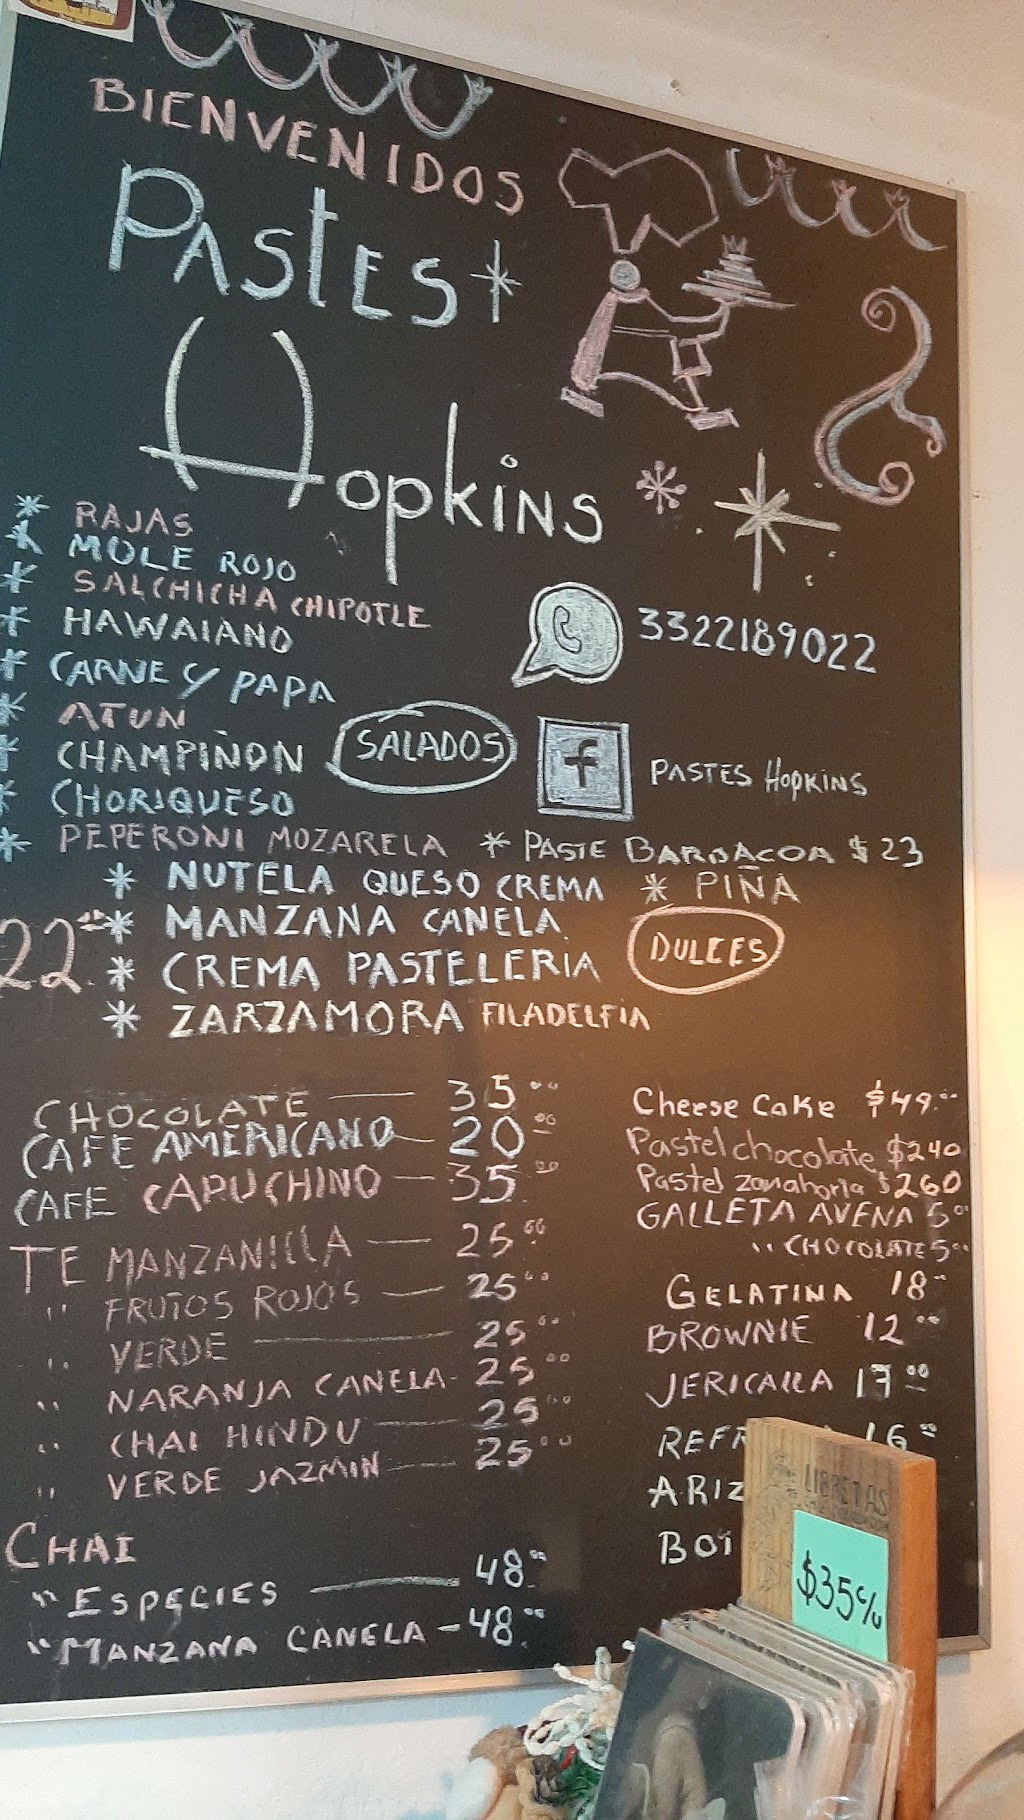 BIENVENIDOS
PASTES
HOPKINS
* RAJAS
* MOLE ROJO
* SALCHICHA CHIPOTLE
* HAWAIANO
* CARNE Y PAPA
* ATUN
* CHAMPIÑON
* CHORIQUESO
* PEPERONI MOZARELA
SALADOS
3322189022
f
PASTES HOPKINS
* PASTE BARBACOA $23
* NUTELA QUESO CREMA
* PIÑA
* MANZANA CANELA
* CREMA PASTELERIA
* ZARZAMORA FILADELFIA
22.00
DULCES
CHOCOLATE — 35.00
CAFE AMERICANO — 20.00
CAFE CAPUCHINO — 35.00
TE MANZANILLA — 25.00
" FRUTOS ROJOS — 25.00
" VERDE — 25.00
" NARANJA CANELA - 25.00
" CHAI HINDU — 25.00
" VERDE JAZMIN — 25.00
CHAI
" ESPECIES — 48.00
" MANZANA CANELA — 48.00
Cheese Cake $49.00
Pastel chocolate $240
Pastel zanahoria $260
GALLETA AVENA 5.00
" CHOCOLATE 5.00
GELATINA 18.00
BROWNIE 12.00
JERICALLA 17.00
REFR 16.00
ARIZ
BOT
LIBRETAS
$35 c/u